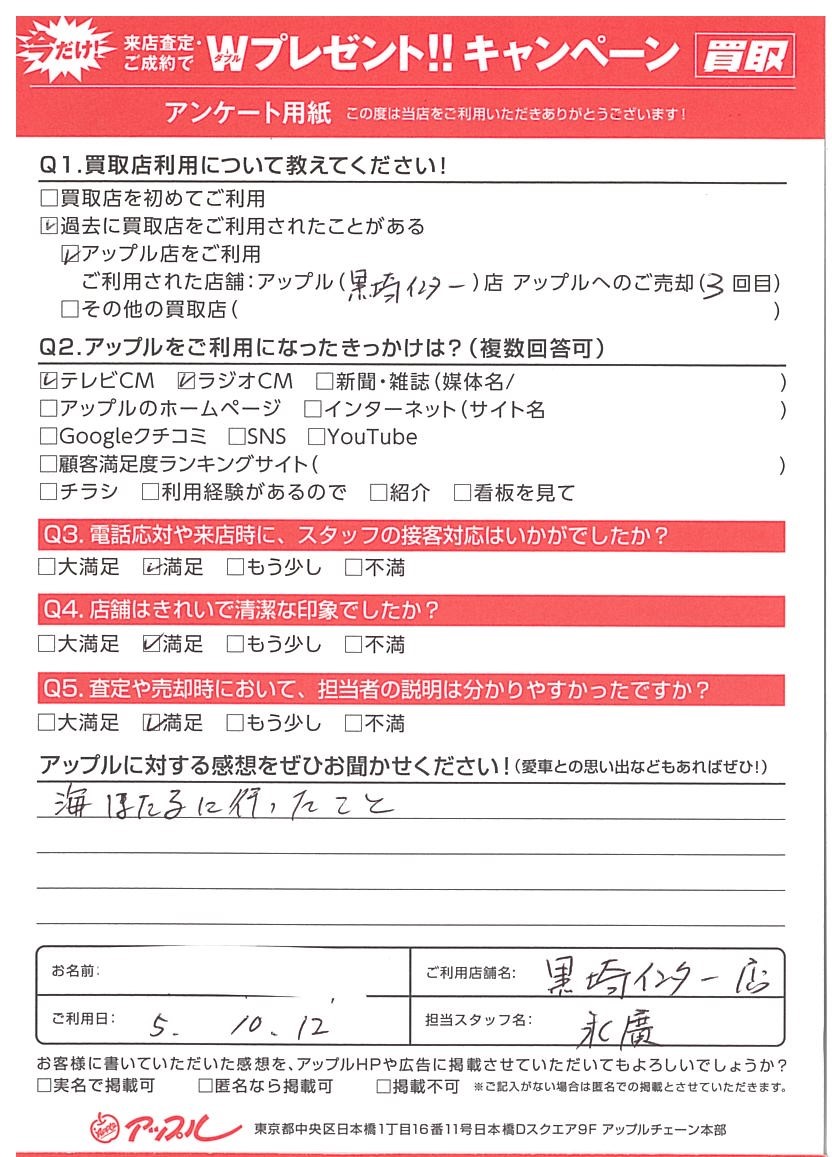 今だけ!
来店査定・ご成約で Wダブルプレゼント!! キャンペーン 買取
アンケート用紙 この度は当店をご利用いただきありがとうございます!
Q1.買取店利用について教えてください!
□買取店を初めてご利用
☑過去に買取店をご利用されたことがある
☑アップル店をご利用
ご利用された店舗:アップル(黒埼インター)店 アップルへのご売却(3回目)
□その他の買取店( )
Q2.アップルをご利用になったきっかけは?(複数回答可)
☑テレビCM ☑ラジオCM □新聞・雑誌(媒体名/ )
□アップルのホームページ □インターネット(サイト名 )
□Googleクチコミ □SNS □YouTube
□顧客満足度ランキングサイト( )
□チラシ □利用経験があるので □紹介 □看板を見て
Q3. 電話応対や来店時に、スタッフの接客対応はいかがでしたか?
□大満足 ☑満足 □もう少し □不満
Q4. 店舗はきれいで清潔な印象でしたか?
□大満足 ☑満足 □もう少し □不満
Q5. 査定や売却時において、担当者の説明は分かりやすかったですか?
□大満足 ☑満足 □もう少し □不満
アップルに対する感想をぜひお聞かせください!(愛車との思い出などもあればぜひ!)
海ほたるに行ったこと
お名前: ご利用店舗名: 黒埼インター店
ご利用日: 5. 10. 12 担当スタッフ名: 永廣
お客様に書いていただいた感想を、アップルHPや広告に掲載させていただいてもよろしいでしょうか?
□実名で掲載可 □匿名なら掲載可 □掲載不可 ※ご記入がない場合は匿名での掲載とさせていただきます。
アップル 東京都中央区日本橋1丁目16番11号日本橋Dスクエア9F アップルチェーン本部